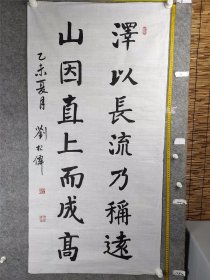 澤以長流乃稱遠
山因直上而成髙
乙未夏月
劉松偉